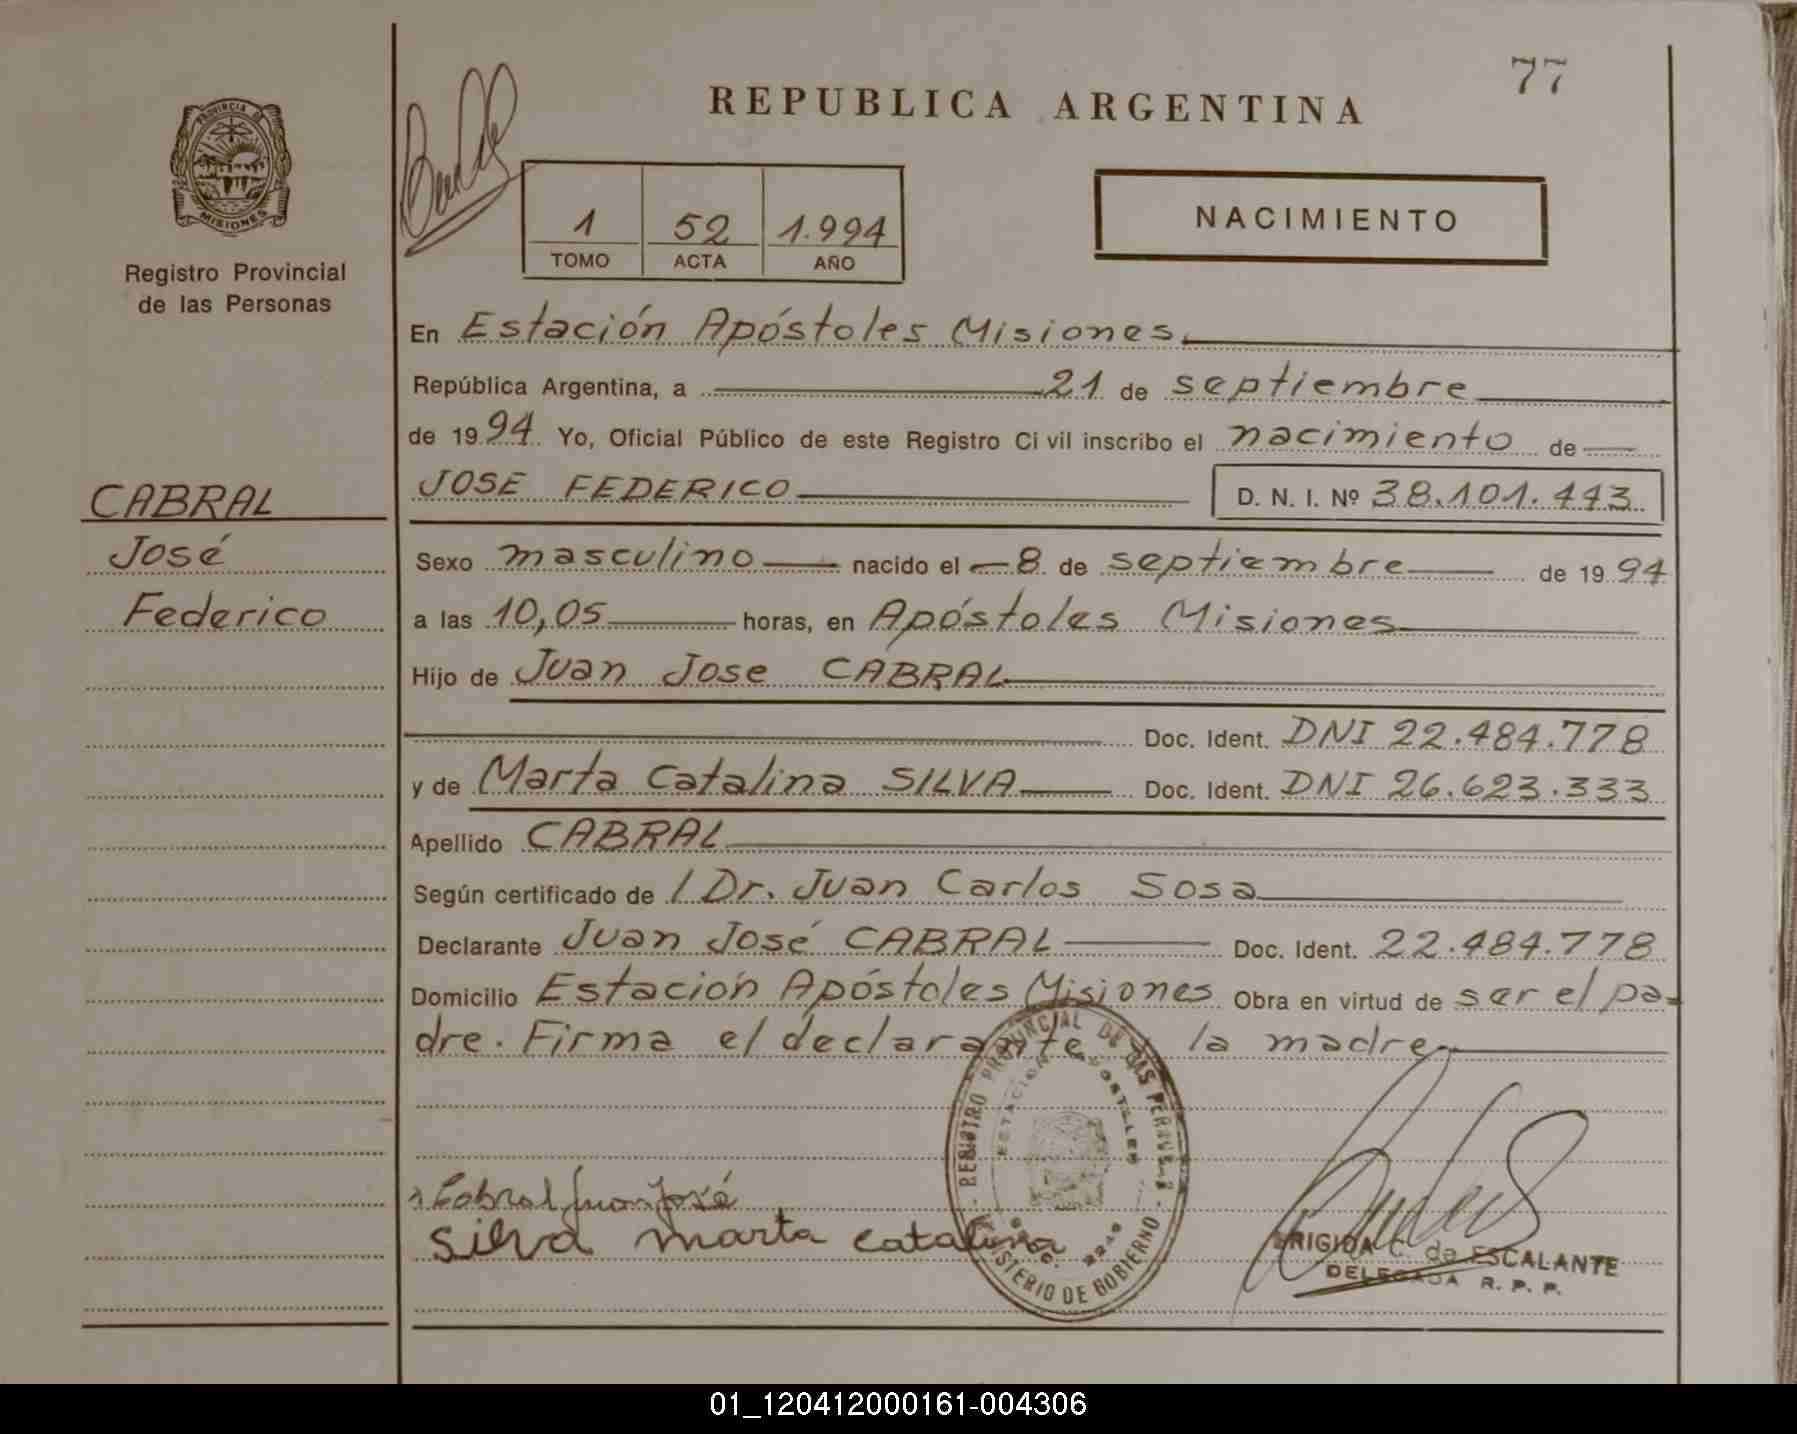 77
REPUBLICA ARGENTINA
PROVINCIA DE
MISIONES
Registro Provincial
de las Personas
1 52 1.994
TOMO ACTA AÑO
NACIMIENTO
En Estación Apóstoles Misiones
República Argentina, a 21 de septiembre
de 1994 Yo, Oficial Público de este Registro Civil inscribo el nacimiento de
CABRAL
José
Federico
JOSE FEDERICO D. N. I. Nº 38.101.443
Sexo masculino nacido el 8 de septiembre de 1994
a las 10,05 horas, en Apóstoles Misiones
Hijo de Juan Jose CABRAL
Doc. Ident. DNI 22.484.778
y de Marta Catalina SILVA Doc. Ident. DNI 26.623.333
Apellido CABRAL
Según certificado de / Dr. Juan Carlos Sosa
Declarante Juan José CABRAL Doc. Ident. 22.484.778
Domicilio Estación Apóstoles Misiones Obra en virtud de ser el pa-
dre. Firma el declarante y la madre
REGISTRO PROVINCIAL DE LAS PERSONAS
ESTACION APOSTOLES
MINISTERIO DE GOBIERNO
Cabral Juan José
Silva Marta Catalina
BRIGIDA C. de ESCALANTE
DELEGADA R. P. P.
01_120412000161-004306